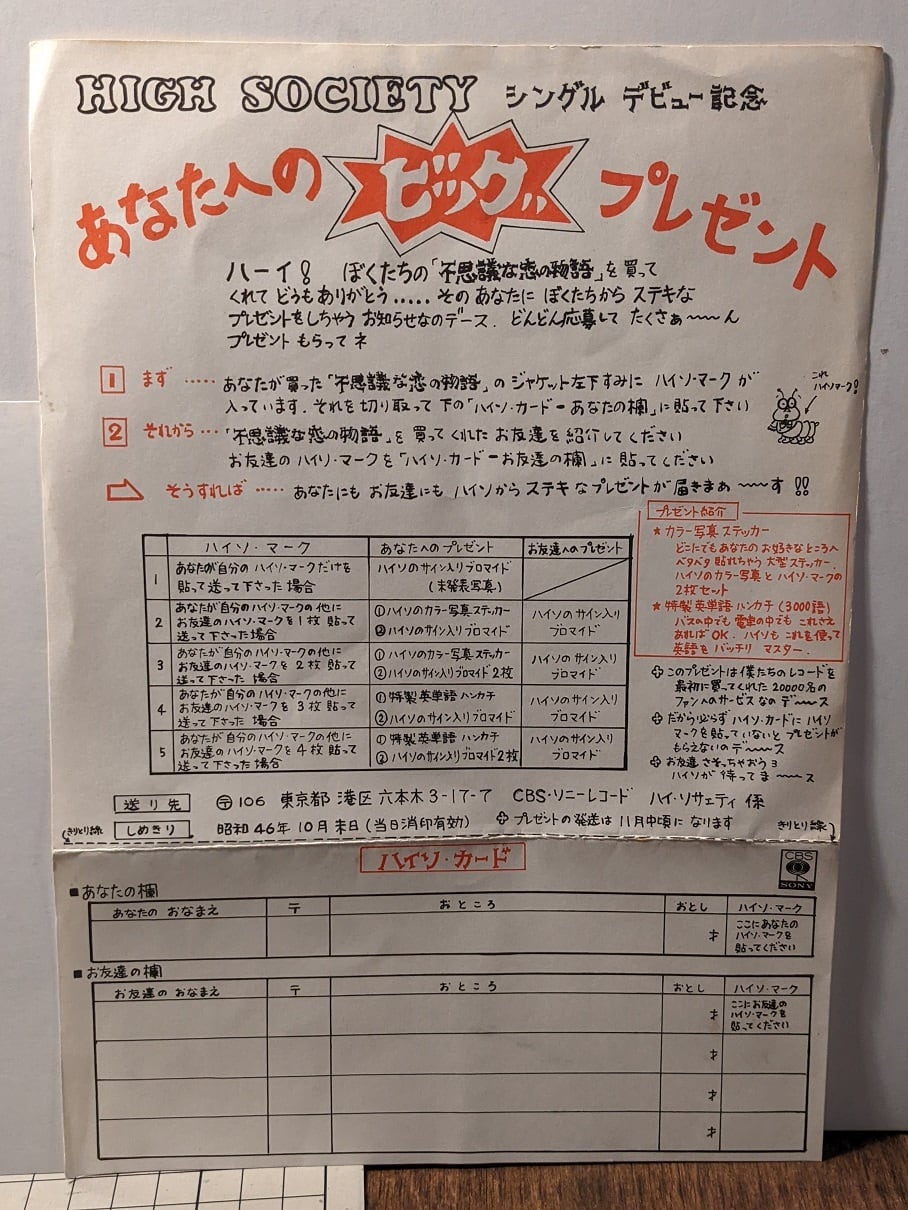 HIGH SOCIETY シングル デビュー記念
あなたへの ビッグ プレゼント
ハーイ! ぼくたちの「不思議な恋の物語」を買って
くれて どうもありがとう..... その あなたに ぼくたちから ステキな
プレゼントをしちゃう お知らせなのデース. どんどん応募して たくさぁ〜〜ん
プレゼント もらって ネ
1 まず ····· あなたが買った「不思議な恋の物語」の ジャケット左下すみに ハイソ・マークが
入っています. それを 切り取って 下の「ハイソ・カード-あなたの欄」に貼って下さい
これ
ハイソマーク!
2 それから ··· 「不思議な恋の物語」を 買ってくれた お友達を紹介してください
お友達の ハイソ・マークを「ハイソ・カード-お友達の欄」に 貼ってください
⇨ そうすれば ····· あなたにも お友達にも ハイソから ステキなプレゼントが届きまぁ〜〜す!!
ハイソ・マーク あなたへのプレゼント お友達へのプレゼント
1 あなたが自分の ハイソ・マークだけを
貼って送って下さった場合
ハイソのサイン入りブロマイド
(未発表写真)
2 あなたが自分のハイソ・マークの他に
お友達のハイソ・マークを1枚 貼って
送って下さった場合
①ハイソのカラー写真ステッカー
②ハイソのサイン入りブロマイド
ハイソのサイン入り
ブロマイド
3 あなたが自分のハイソ・マークの他に
お友達のハイソ・マークを 2枚 貼って
送って下さった場合
①ハイソのカラー写真ステッカー
②ハイソのサイン入りブロマイド2枚
ハイソのサイン入り
ブロマイド
4 あなたが自分のハイソ・マークの他に
お友達のハイソ・マークを 3枚 貼って
送って下さった 場合
①特製英単語 ハンカチ
②ハイソのサイン入りブロマイド
ハイソのサイン入り
ブロマイド
5 あなたが自分のハイソ・マークの他に
お友達のハイソ・マークを 4枚 貼って
送って下さった 場合
①特製英単語 ハンカチ
②ハイソのサイン入りブロマイド2枚
ハイソのサイン入り
ブロマイド
プレゼント紹介
★カラー写真 ステッカー
どこにでもあなたのお好きなところへ
ペタペタ 貼れちゃう 大型ステッカー.
ハイソのカラー写真と ハイソ・マークの
2枚セット
★特製英単語 ハンカチ(3000語)
バスの中でも 電車の中でも これさえ
あれば OK. ハイソも これを使って
英語を バッチリ マスター.
✚このプレゼントは僕たちのレコードを
最初に買ってくれた 20000名の
ファンへのサービスなの デ〜〜ス
✚だから必らず ハイソ・カードに ハイソ
マークを貼っていないと プレゼントが
もらえないの デ〜〜ス
✚お友達 さそっちゃおうョ
ハイソが 待ってま〜〜ス
送り先 〒106 東京都 港区 六本木3-17-7 CBS・ソニーレコード ハイ・ソサェティ 係
しめきり 昭和46年10月末日(当日消印有効) ✚プレゼントの発送は 11月中頃に なります
きりとり線 きりとり線
ハイソ・カード
CBS
SONY
■あなたの欄
あなたの おなまえ 〒 おところ おとし ハイソ・マーク
才 ここにあなたの
ハイソ・マークを
貼ってください
■お友達の欄
お友達の おなまえ 〒 おところ おとし ハイソ・マーク
才 ここにお友達の
ハイソ・マークを
貼ってください
才
才
才